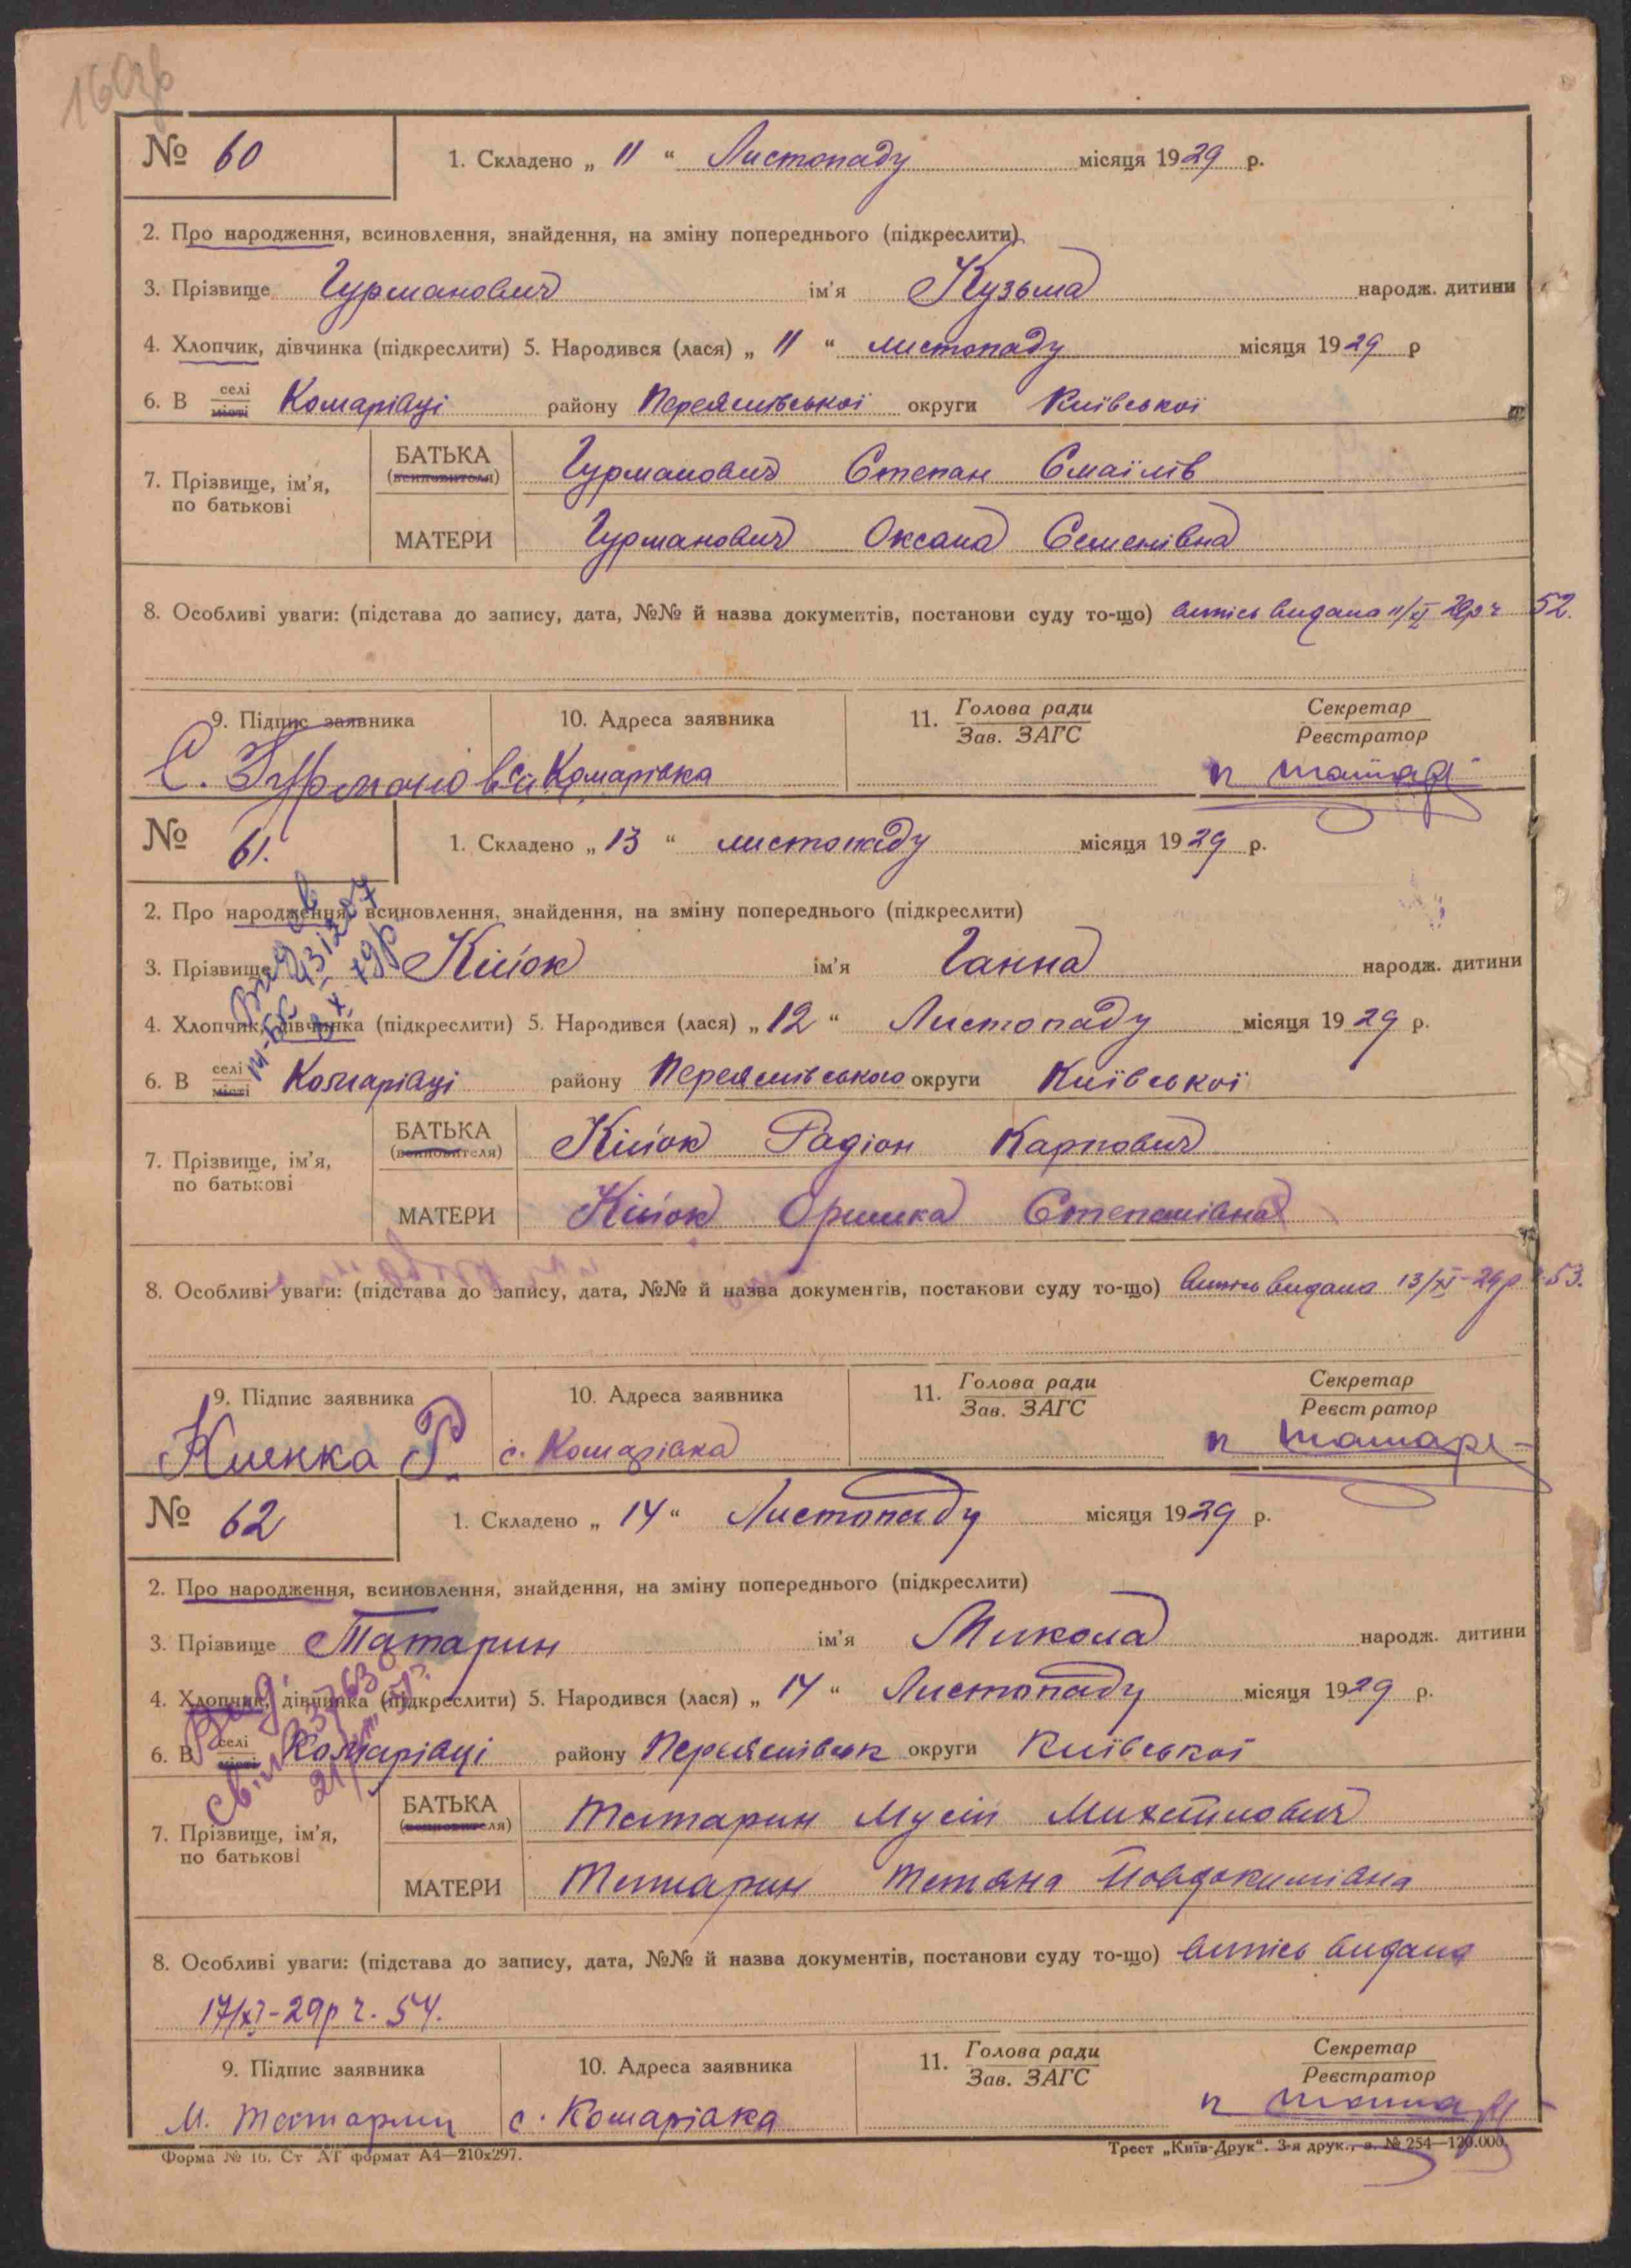 160
№ 60
1. Складено „ 11 “ Листопаду місяця 1929 р.
2. Про народження, всиновлення, знайдення, на зміну попереднього (підкреслити)
3. Прізвище Гурманович ім'я Кузьма народж. дитини
4. Хлопчик, дівчинка (підкреслити) 5. Народився (лася) „ 11 “ листопаду місяця 1929 р
6. В селі місті Комарівці району Переяслівської округи Київської
БАТЬКА (всиновителя) Гурманович Степан
7. Прізвище, ім'я,
по батькові
МАТЕРИ Гурманович Оксана Семенівна
8. Особливі уваги: (підстава до запису, дата, №№ й назва документів, постанови суду то-що) випись видана 11/XI 29р ч 52.
9. Підпис заявника 10. Адреса заявника 11. Голова ради Секретар
Зав. ЗАГС Реєстратор
С. с. Комарівка
№ 61.
1. Складено „ 13 “ листопаду місяця 1929 р.
2. Про народження, всиновлення, знайдення, на зміну попереднього (підкреслити)
3. Прізвище Кійок ім'я Ганна народж. дитини
4. Хлопчик, дівчинка (підкреслити) 5. Народився (лася) „ 12 “ Листопаду місяця 1929 р.
6. В селі місті Комарівці району Переяслівського округи Київської
БАТЬКА (всиновителя) Кійок Радіон Карпович
7. Прізвище, ім'я,
по батькові
МАТЕРИ Кійок Оришка Степанівна
8. Особливі уваги: (підстава до запису, дата, №№ й назва документів, постакови суду то-що) випись видана 13/XI-29р ч 53.
9. Підпис заявника 10. Адреса заявника 11. Голова ради Секретар
Зав. ЗАГС Реєстратор
Р. с. Комарівка
№ 62
1. Складено „ 14 “ Листопаду місяця 1929 р.
2. Про народження, всиновлення, знайдення, на зміну попереднього (підкреслити)
3. Прізвище Татарин ім'я Микола народж. дитини
4. Хлопчик, дівчинка (підкреслити) 5. Народився (лася) „ 14 “ Листопаду місяця 1929 р.
6. В селі місті Комарівці району Переяслівськ округи Київської
БАТЬКА (всиновителя) Татарин Мусій Михайлович
7. Прізвище, ім'я,
по батькові
МАТЕРИ Татарин Тетяна Йовдокимівна
8. Особливі уваги: (підстава до запису, дата, №№ й назва документів, постанови суду то-що) випись видана
17/XI-29р ч. 54.
9. Підпис заявника 10. Адреса заявника 11. Голова ради Секретар
Зав. ЗАГС Реєстратор
М. Татарин с. Комарівка
Форма № 16. Ст АТ формат А4—210х297.
Трест „Київ-Друк“. 3-я друк., з. № 254—120.000.